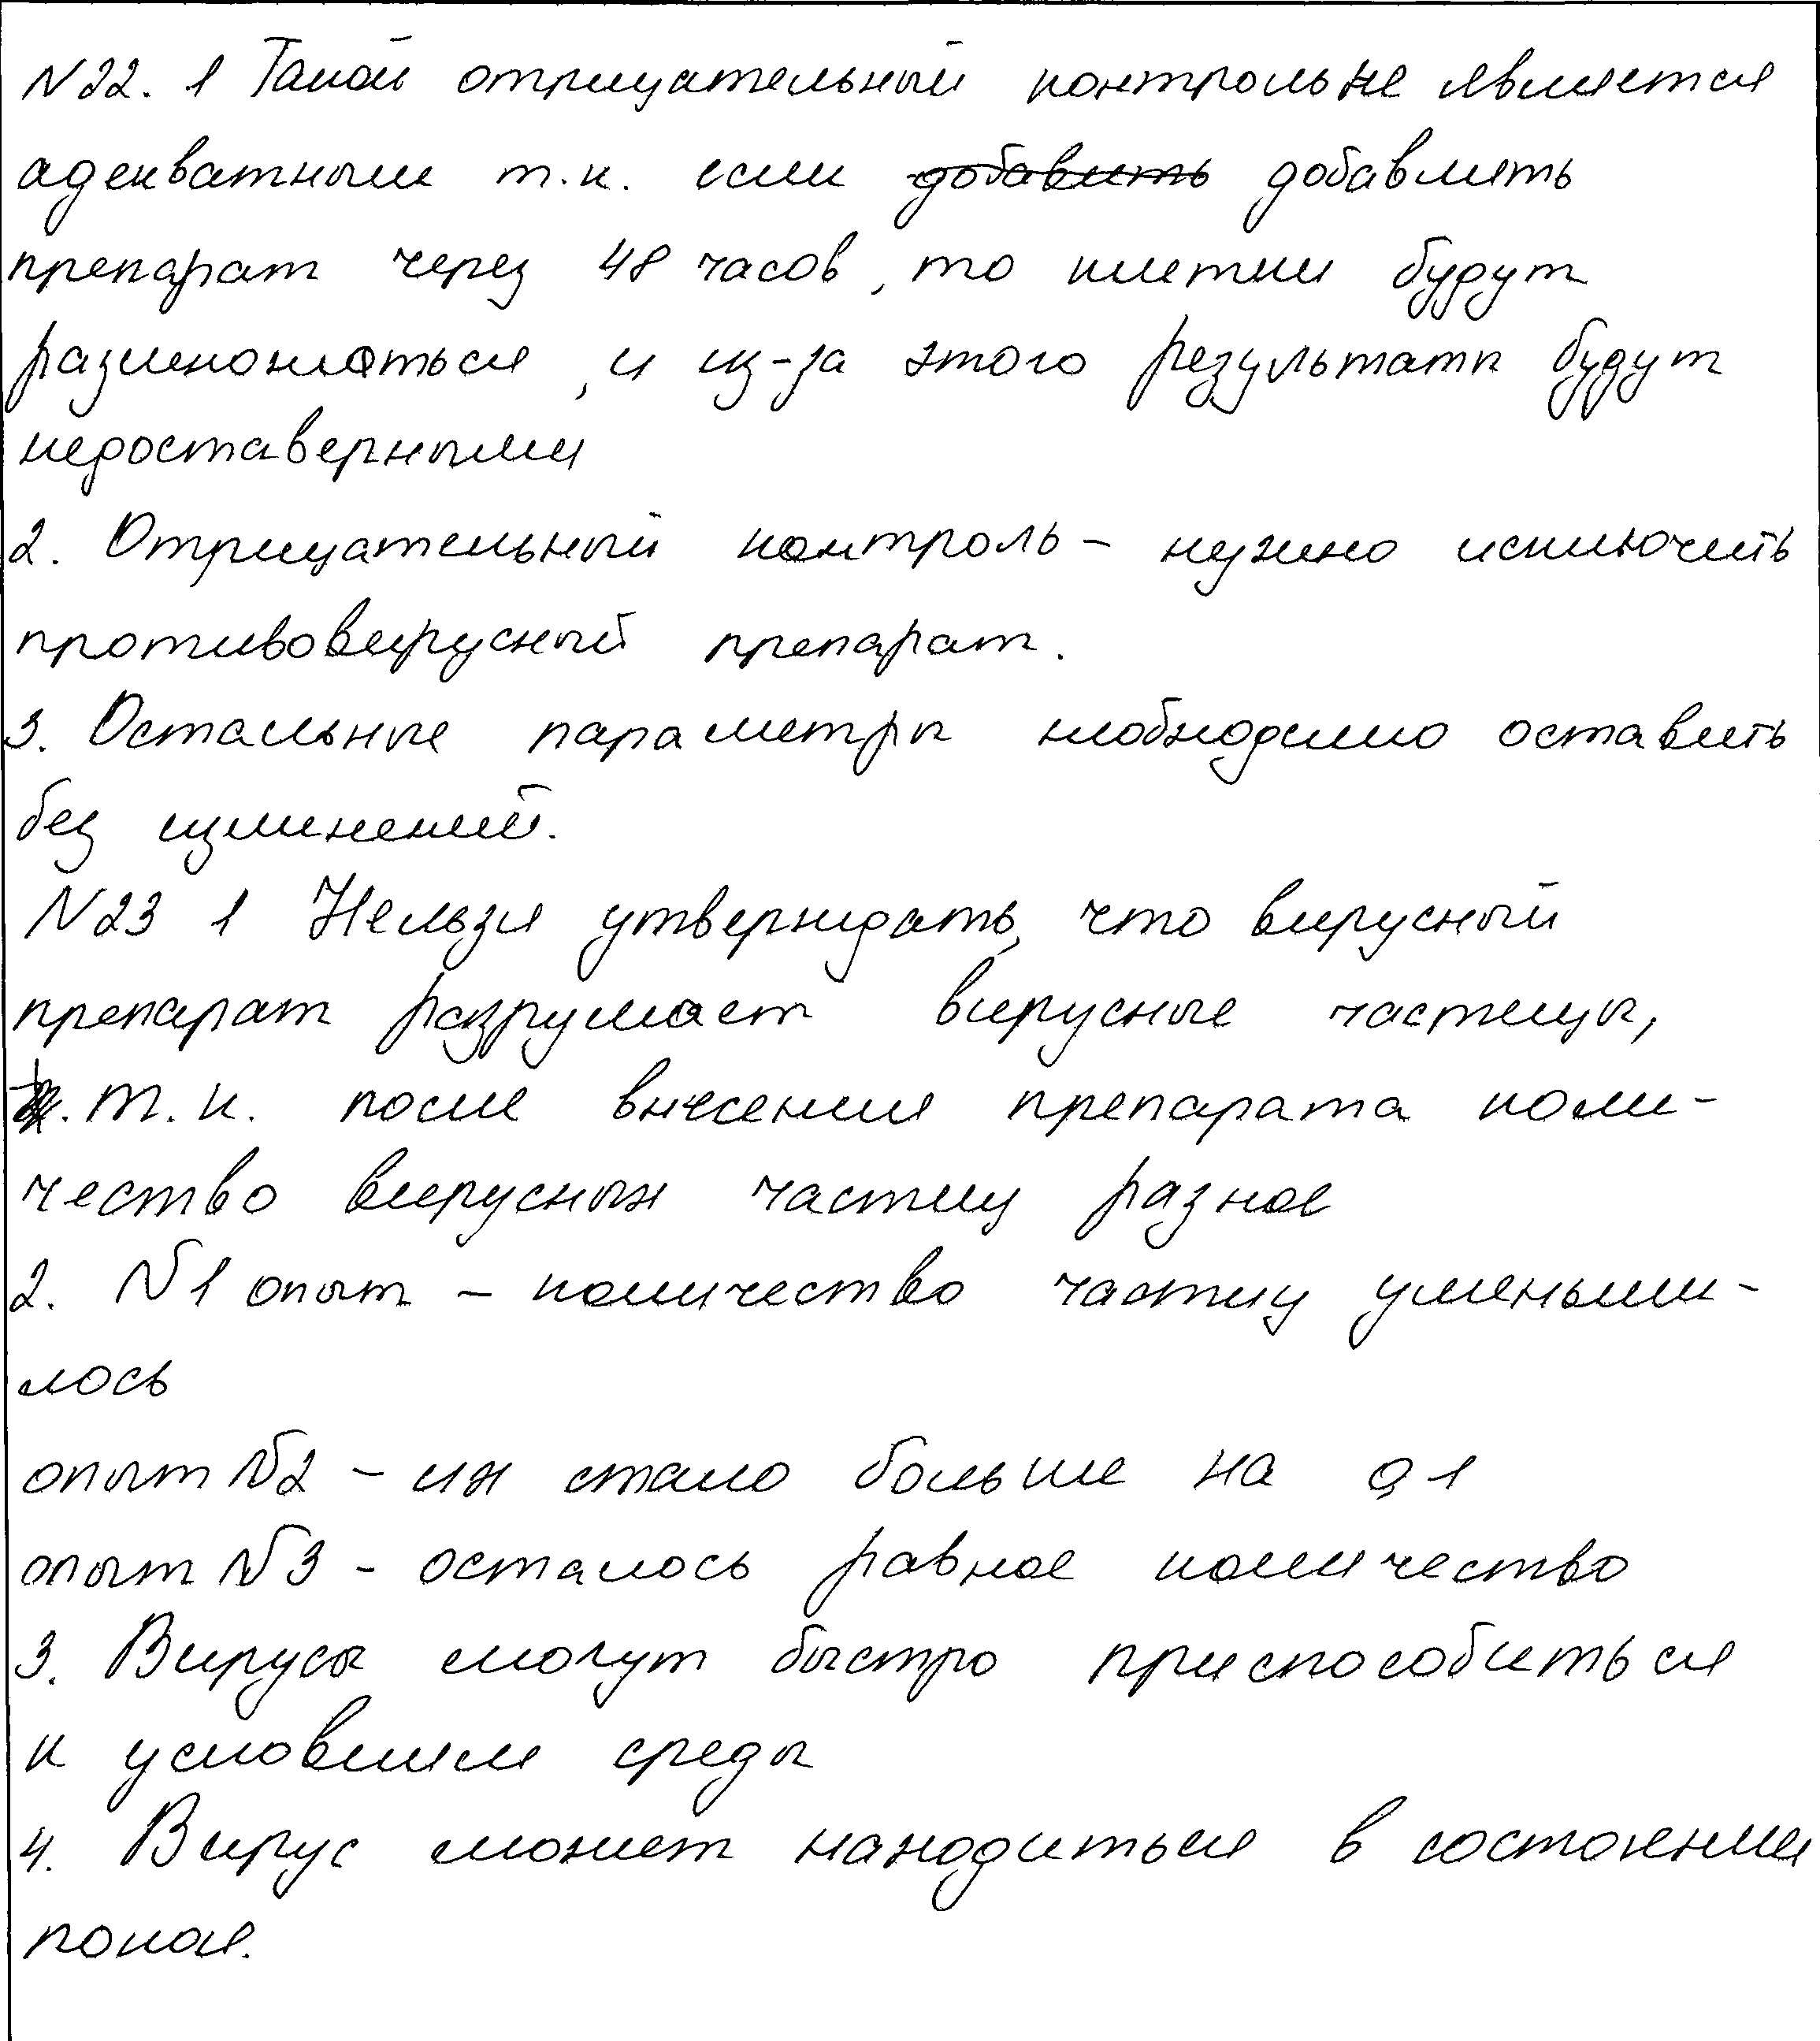 N22. 1 Такой отрицательный контроль не является
адекватным т.к. если добавить добавлять
препарат через 48 часов, то клетки будут
размножаться, и из-за этого результаты будут
недоставерными
2. Отрицательный контроль - нужно исключить
противовирусный препарат.
3. Остальные параметры необходимо оставить
без изминений.
N23 1 Нельзя утверждать, что вирусный
препарат разрушает вирусные частицы,
т.к. после внесения препарата коли-
чество вирусных частиц разное
2. №1 опыт - количество частиц уменьши-
лось
опыт №2 - их стало больше на 0,1
опыт №3 - осталось равное количество
3. Вирусы могут быстро приспособиться
к условиям среды
4. Вирус может находиться в состоянии
покоя.